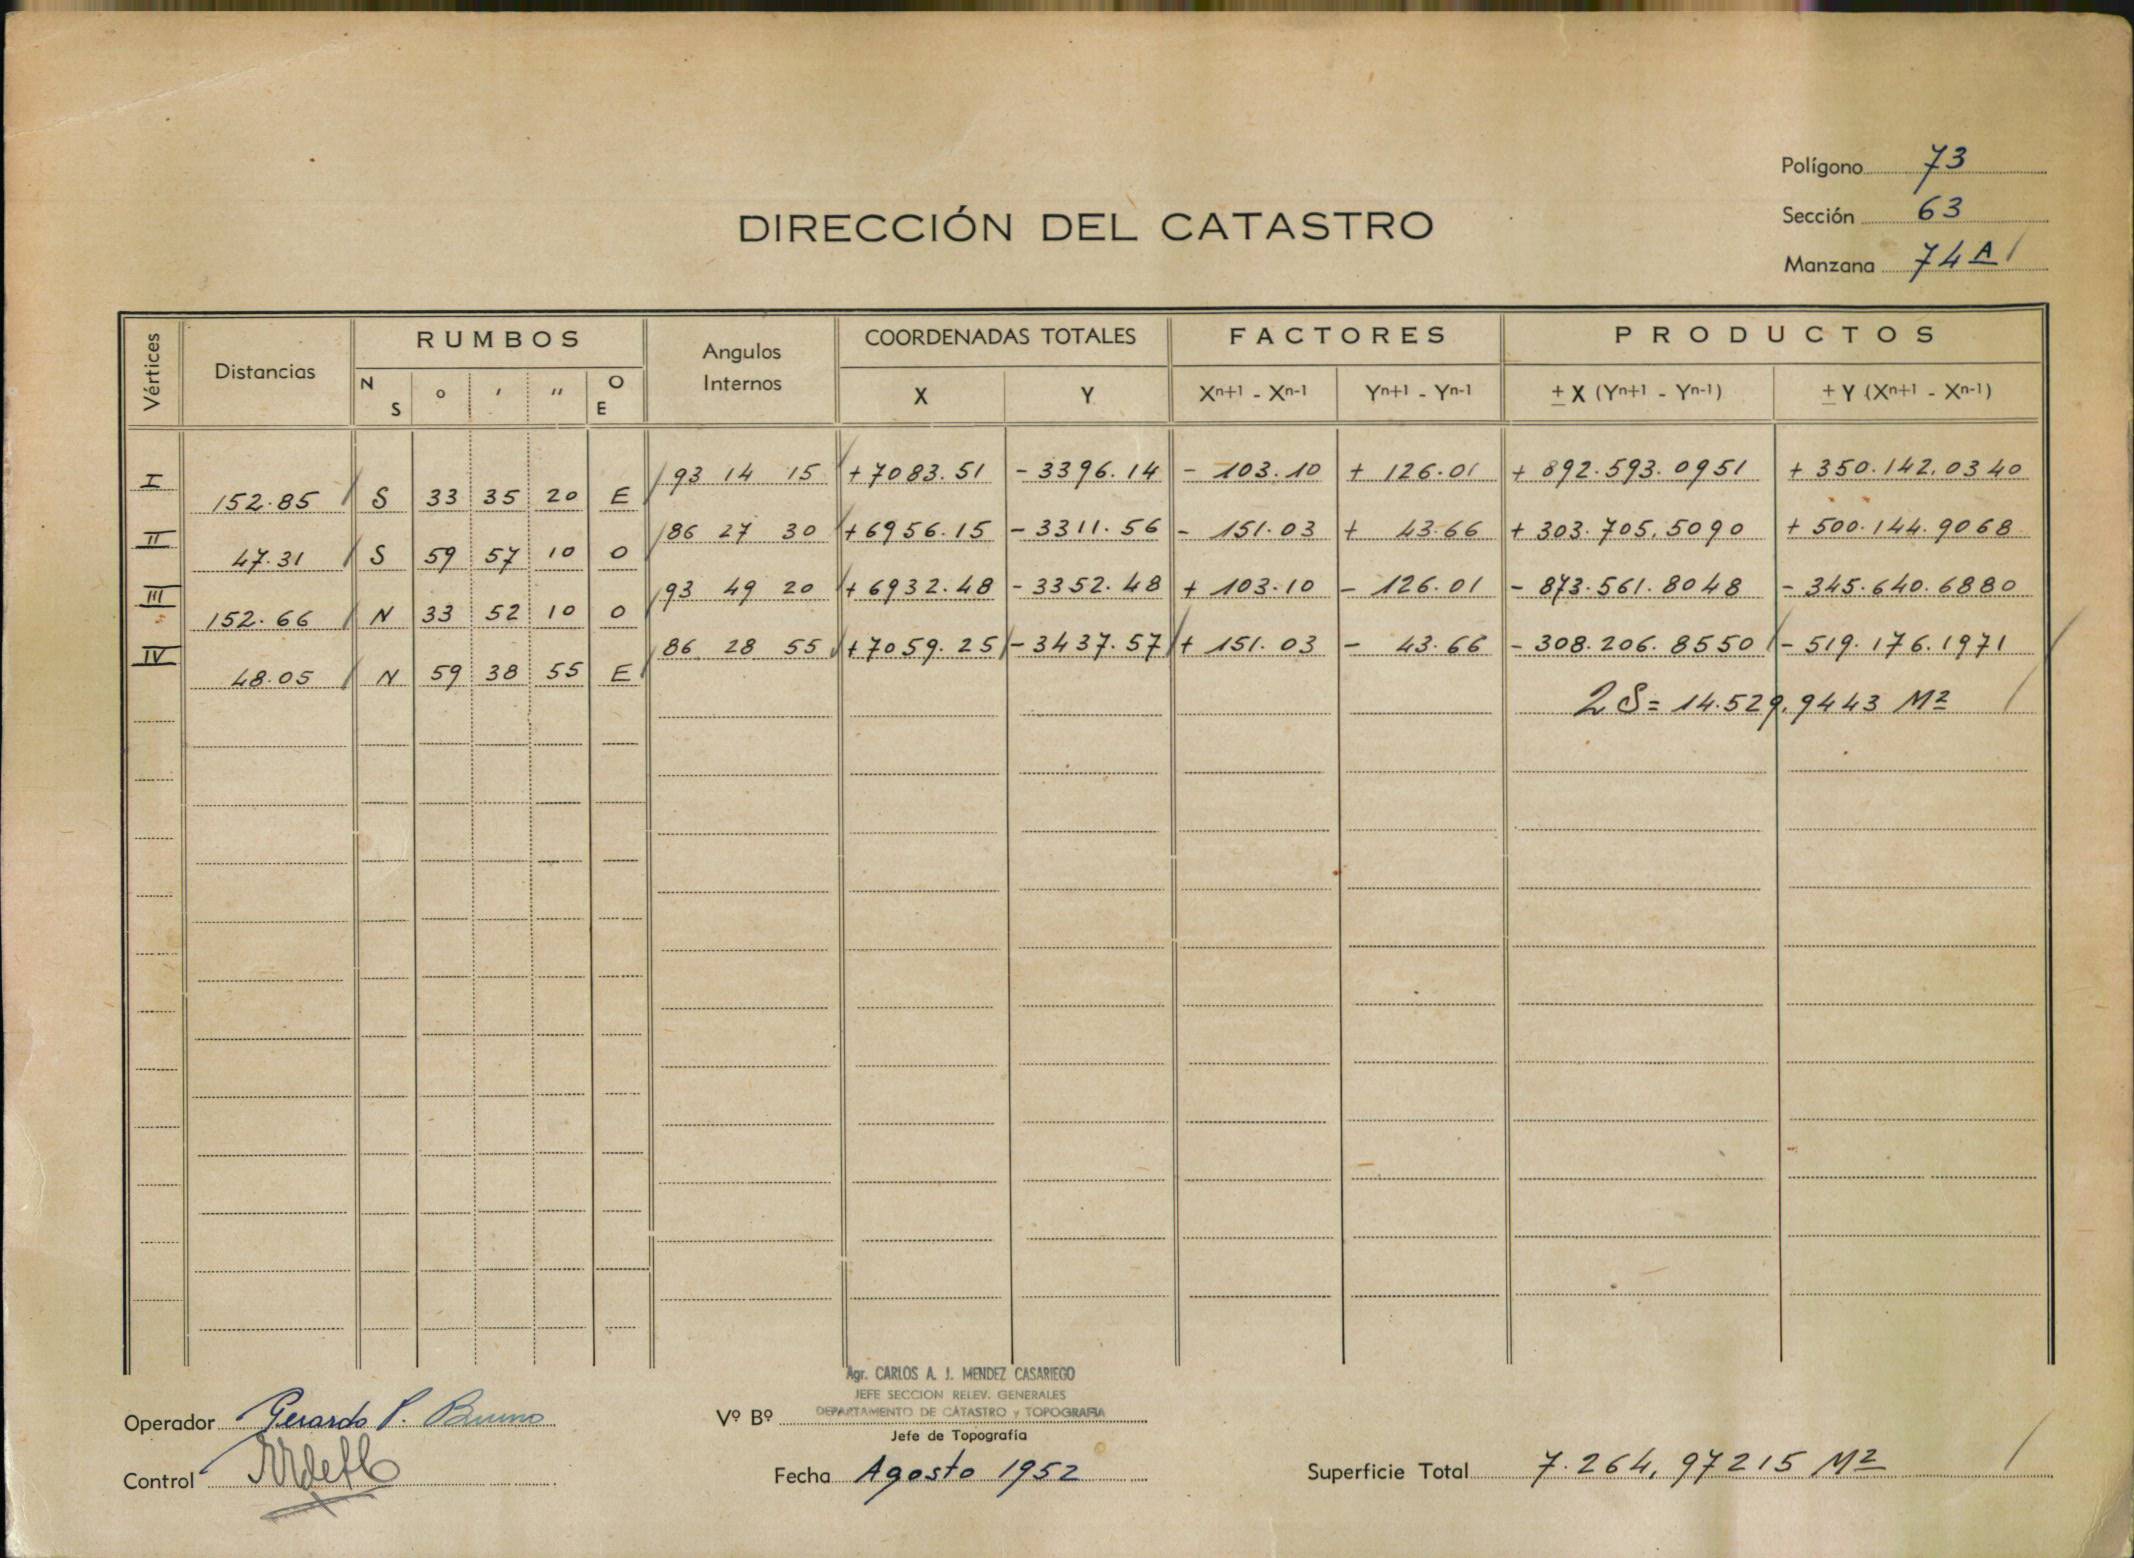 Polígono 73
Sección 63
Manzana 74 A
DIRECCIÓN DEL CATASTRO
Vértices Distancias RUMBOS Angulos Internos COORDENADAS TOTALES FACTORES PRODUCTOS
N S ° ' " O E X Y Xn+1 - Xn-1 Yn+1 - Yn-1 ± X (Yn+1 - Yn-1) ± Y (Xn+1 - Xn-1)
I 93 14 15 +7083.51 -3396.14 - 103.10 + 126.01 + 892.593.0951 + 350.142.0340
152.85 S 33 35 20 E
II 86 27 30 +6956.15 -3311.56 - 151.03 + 43.66 + 303.705.5090 + 500.144.9068
47.31 S 59 57 10 O
III 93 49 20 +6932.48 -3352.48 + 103.10 - 126.01 - 873.561.8048 - 345.640.6880
152.66 N 33 52 10 O
IV 86 28 55 +7059.25 -3437.57 + 151.03 - 43.66 - 308.206.8550 - 519.176.1971
48.05 N 59 38 55 E
2S = 14.529.9443 M2
Agr. CARLOS A. J. MENDEZ CASARIEGO
JEFE SECCION RELEV. GENERALES
DEPARTAMENTO DE CATASTRO y TOPOGRAFIA
Operador Gerardo P. Bruno
Vº Bº
Jefe de Topografía
Control
Fecha Agosto 1952
Superficie Total 7.264,97215 M2